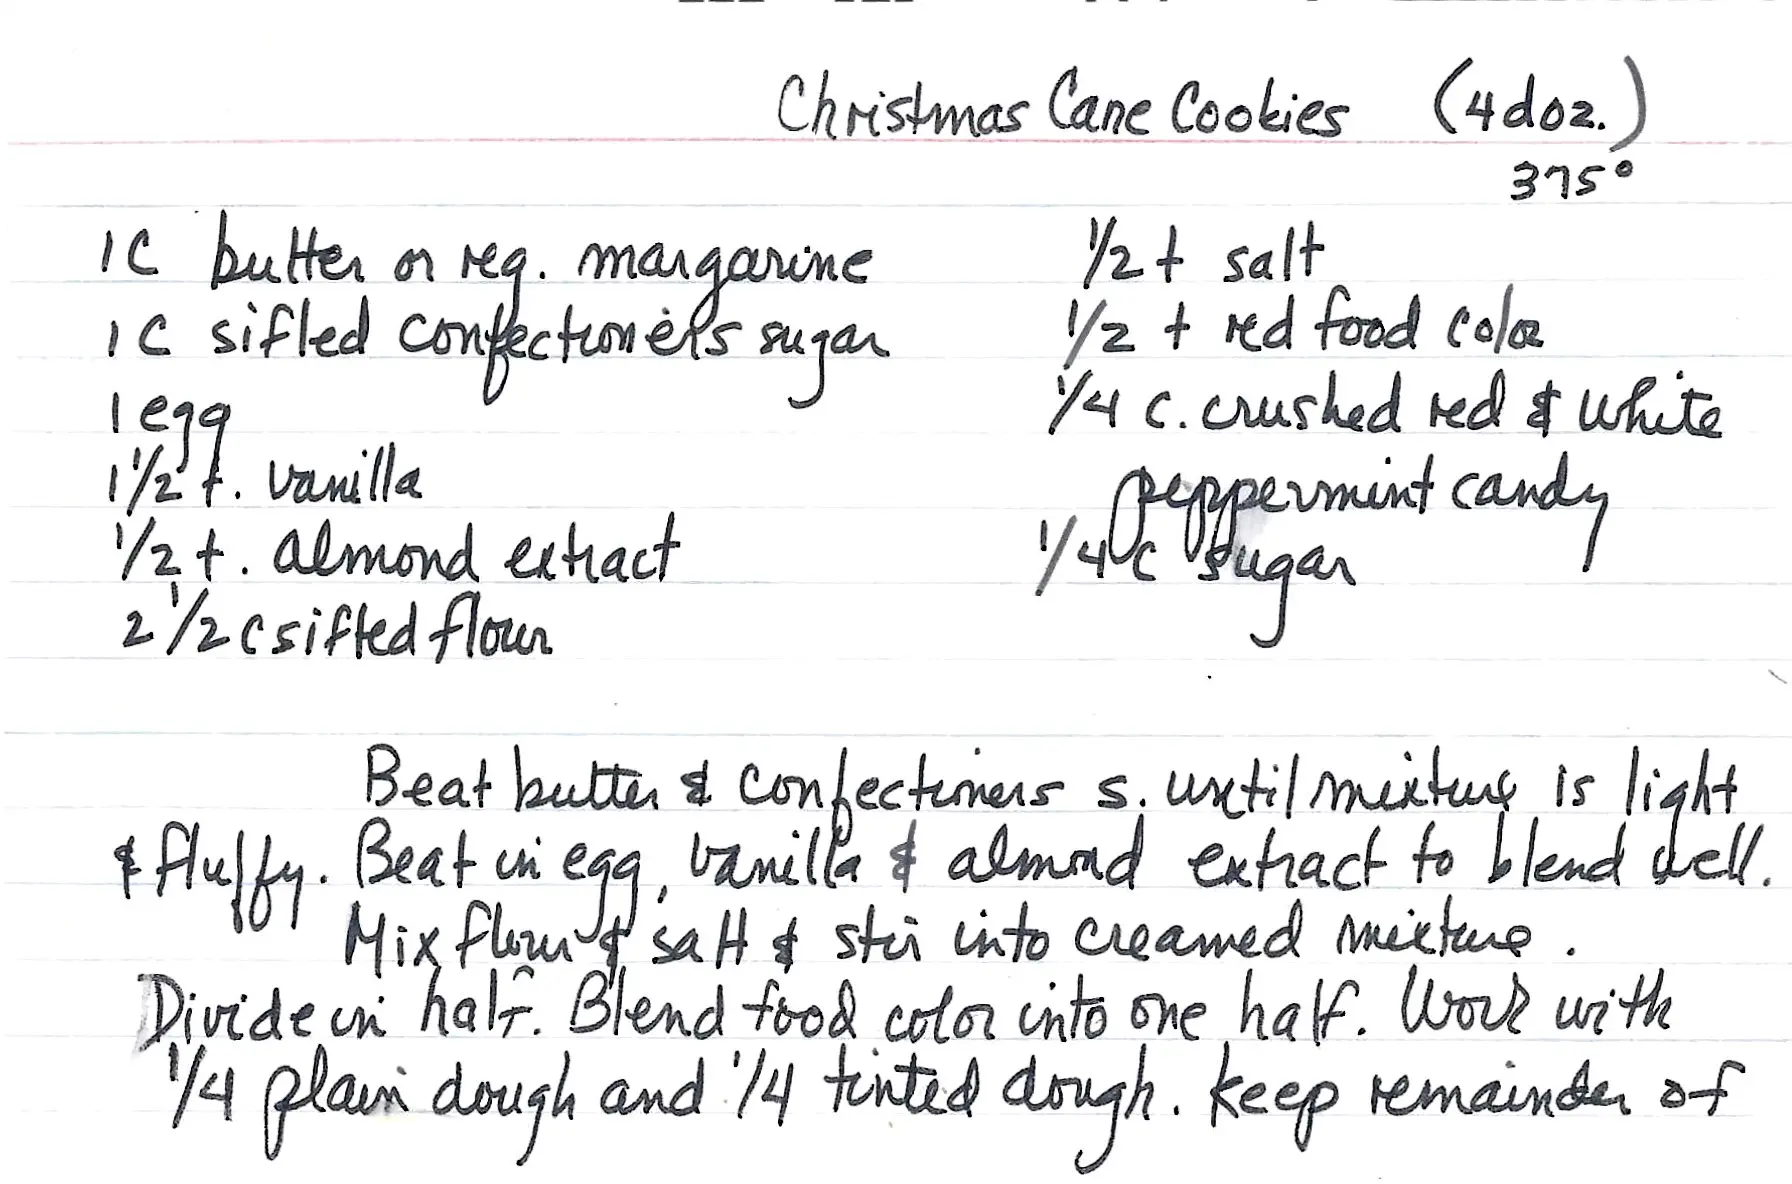 Christmas Cane Cookies (4 doz.)
375°
1 C butter or reg. margarine
1 C sifted confectioners sugar
1 egg
1 1/2 t. vanilla
1/2 t. almond extract
2 1/2 c sifted flour
1/2 t salt
1/2 t red food color
1/4 c. crushed red & white
peppermint candy
1/4 c sugar
Beat butter & confectioners s. until mixture is light
& fluffy. Beat in egg, vanilla & almond extract to blend well.
Mix flour & salt & stir into creamed mixture.
Divide in half. Blend food color into one half. Work with
1/4 plain dough and 1/4 tinted dough. Keep remainder of